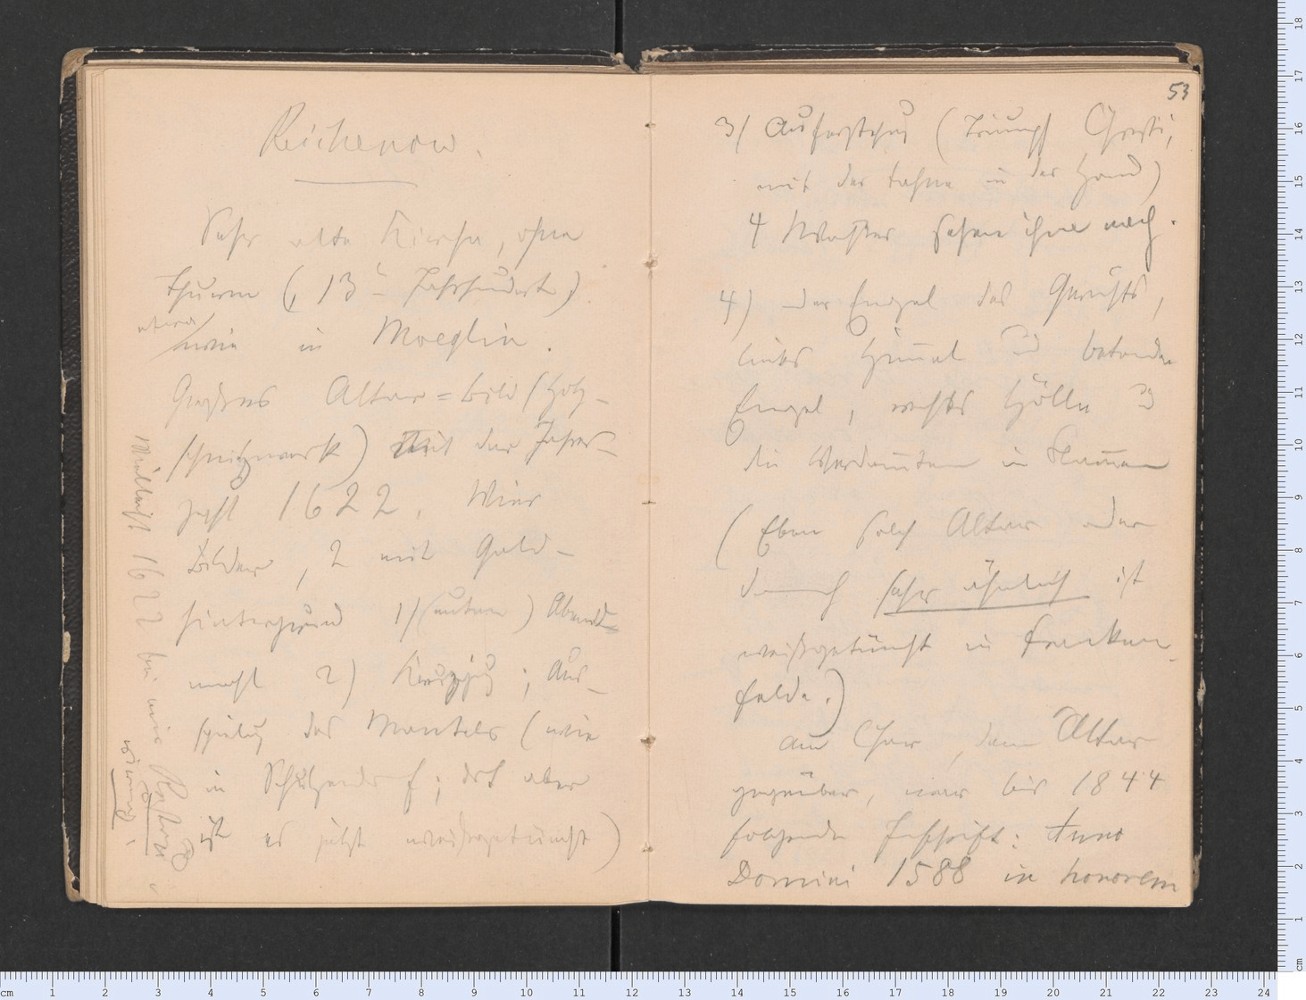 Reichenow.
Sehr alte Kirche, ohne
Thurm (13. Jahrhundert)
etwa
wie in Moeglin.
Großes Altar=Bild (Holz-
schnitzwerk) mit der Jahres-
zahl 1622. Vier
Bilder, 2 mit Gold-
hintergrund 1) (unten) Abend-
mahl 2) Kreuzigung; Aus-
spielung des Mantels (wie
in Schulzendorf; dort aber
ist es jetzt weißgetüncht)
Vielleicht 1622 bei einer
53
3) Auferstehung (Triumph Christi,
mit der Fahne in der Hand)
4 Wächter sehen ihm nach.
4) der Engel des Gerichts,
links Himmel und betende
Engel, rechts Hölle und
die Verdammten in Flammen
(Eben solch Altar oder
doch sehr ähnlich ist
weißgetüncht in Franken-
felde.)
Am Chor, dem Altar
gegenüber, war bis 1844
folgende Inschrift: Anno
Domini 1588 in honorem